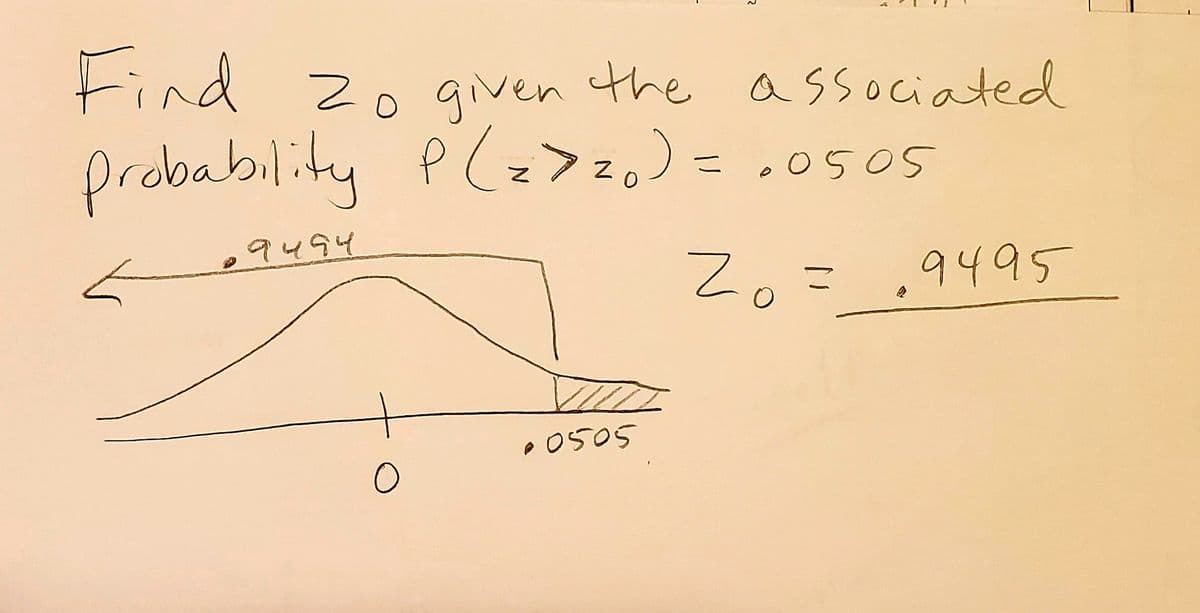 Find z₀ given the associated
probability P(z>z₀) = .0505
.9494
Z₀ = .9495
.0505
0